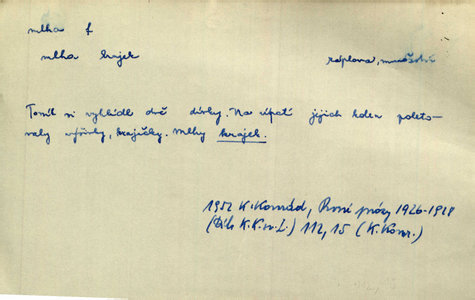 mlha f
mlha krajek záplava, množství
Tomíl si vyhlídl dvě dívky. Na úpatí jejich kolen poleto-
valy volánky, krajičky. Mlhy krajek.
1952 K. Konrád, První prózy 1926-1928
(Dílo K. K. sv. I.) 112, 15 (K. Konr.)